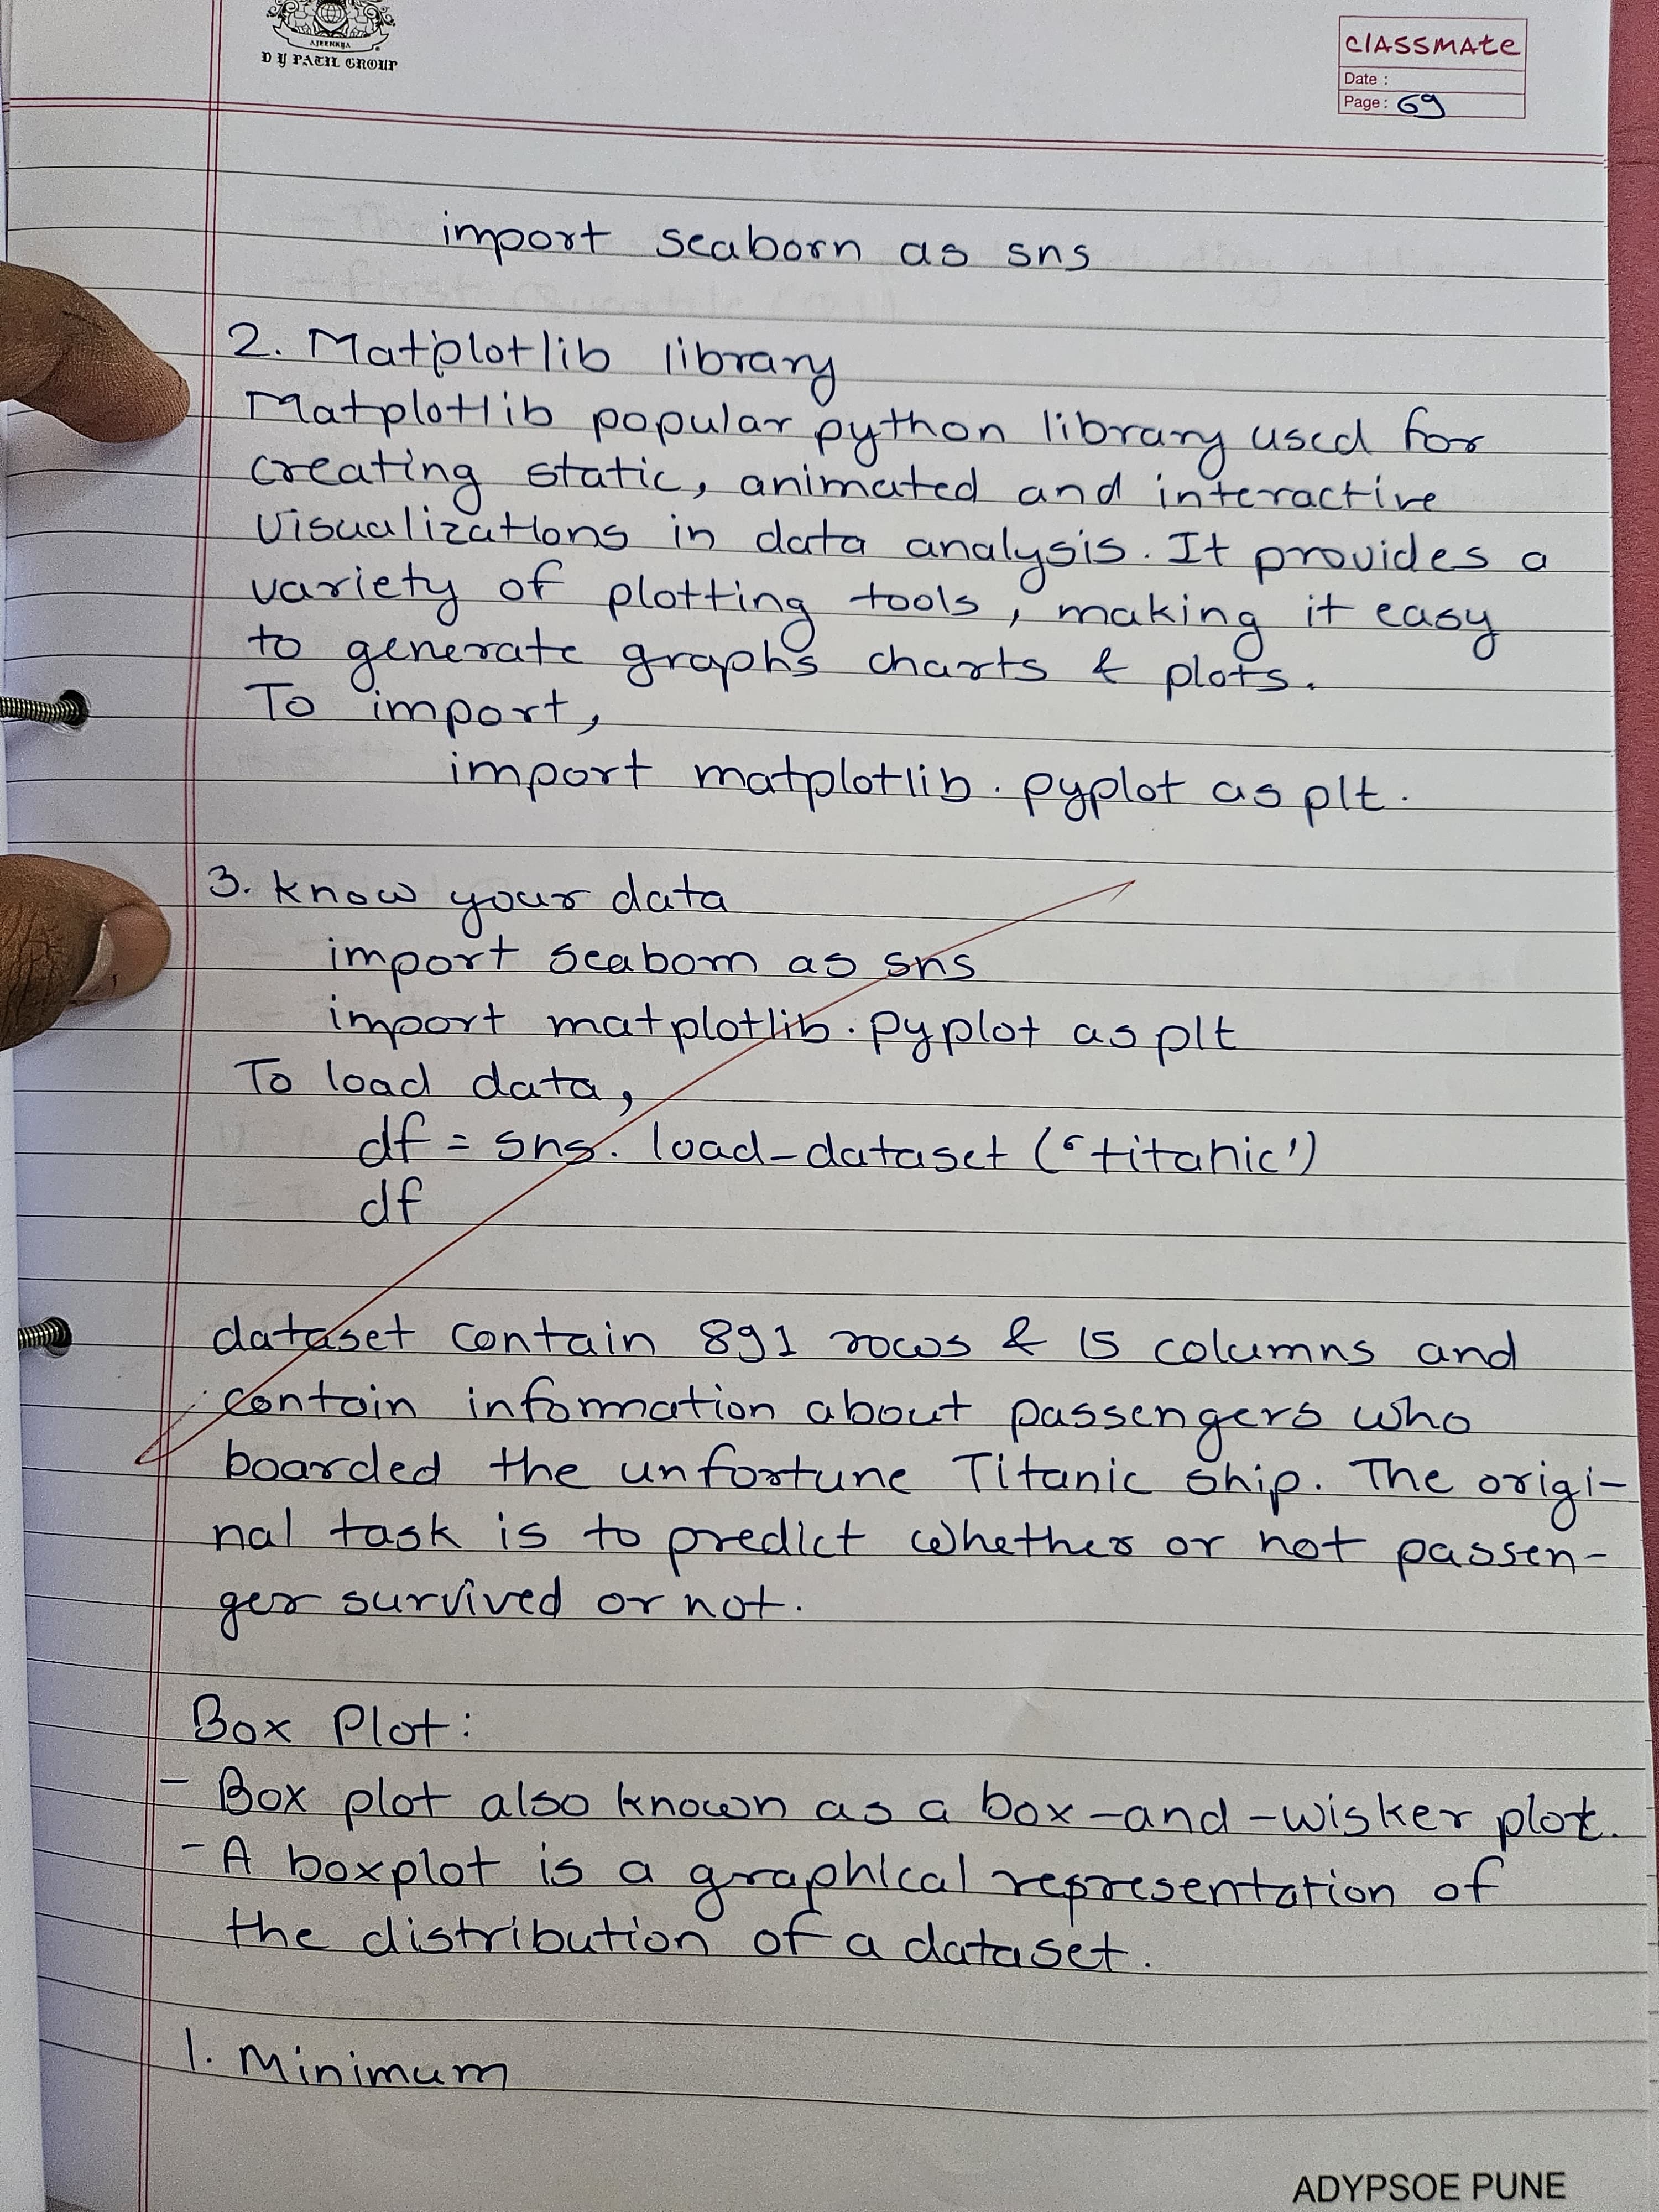 AJEENKYA
D Y PATIL GROUP
CLASSMATE
Date :
Page : 69
import seaborn as sns
2. Matplotlib library
Matplotlib popular python library used for
creating static, animated and interactive
visualizations in data analysis. It provides a
variety of plotting tools, making it easy
to generate graphs charts & plots.
To import,
import matplotlib.pyplot as plt.
3. know your data
import seaborn as sns
import matplotlib.pyplot as plt
To load data,
df = sns. load-dataset ('titanic')
df
dataset contain 891 rows & 15 columns and
contain information about passengers who
boarded the unfortune Titanic ship. The origi-
nal task is to predict whether or not passen-
ger survived or not.
Box Plot:
- Box plot also known as a box-and-wisker plot.
- A boxplot is a graphical representation of
the distribution of a dataset.
1. Minimum
ADYPSOE PUNE